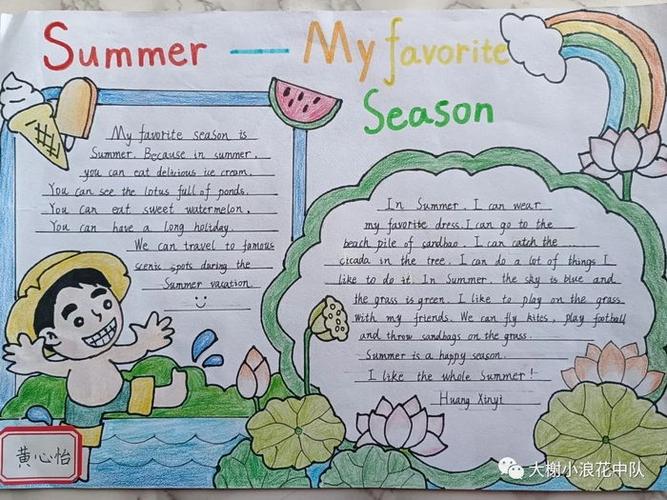 Summer — My favorite
Season
My favorite season is
Summer. Because in summer,
you can eat delicious ice cream.
You can see the lotus full of ponds.
You can eat sweet watermelon.
You can have a long holiday.
We can travel to famous
scenic spots during the
Summer vacation.
In Summer, I can wear
my favorite dress. I can go to the
beach pile of sandbao. I can catch the
cicada in the tree. I can do a lot of things I
like to do it. In Summer, the sky is blue and
the grass is green. I like to play on the grass
with my friends. We can fly kites, play football
and throw sandbags on the grass.
Summer is a happy season.
I like the whole Summer!
Huang Xinyi
黄心怡
大榭小浪花中队